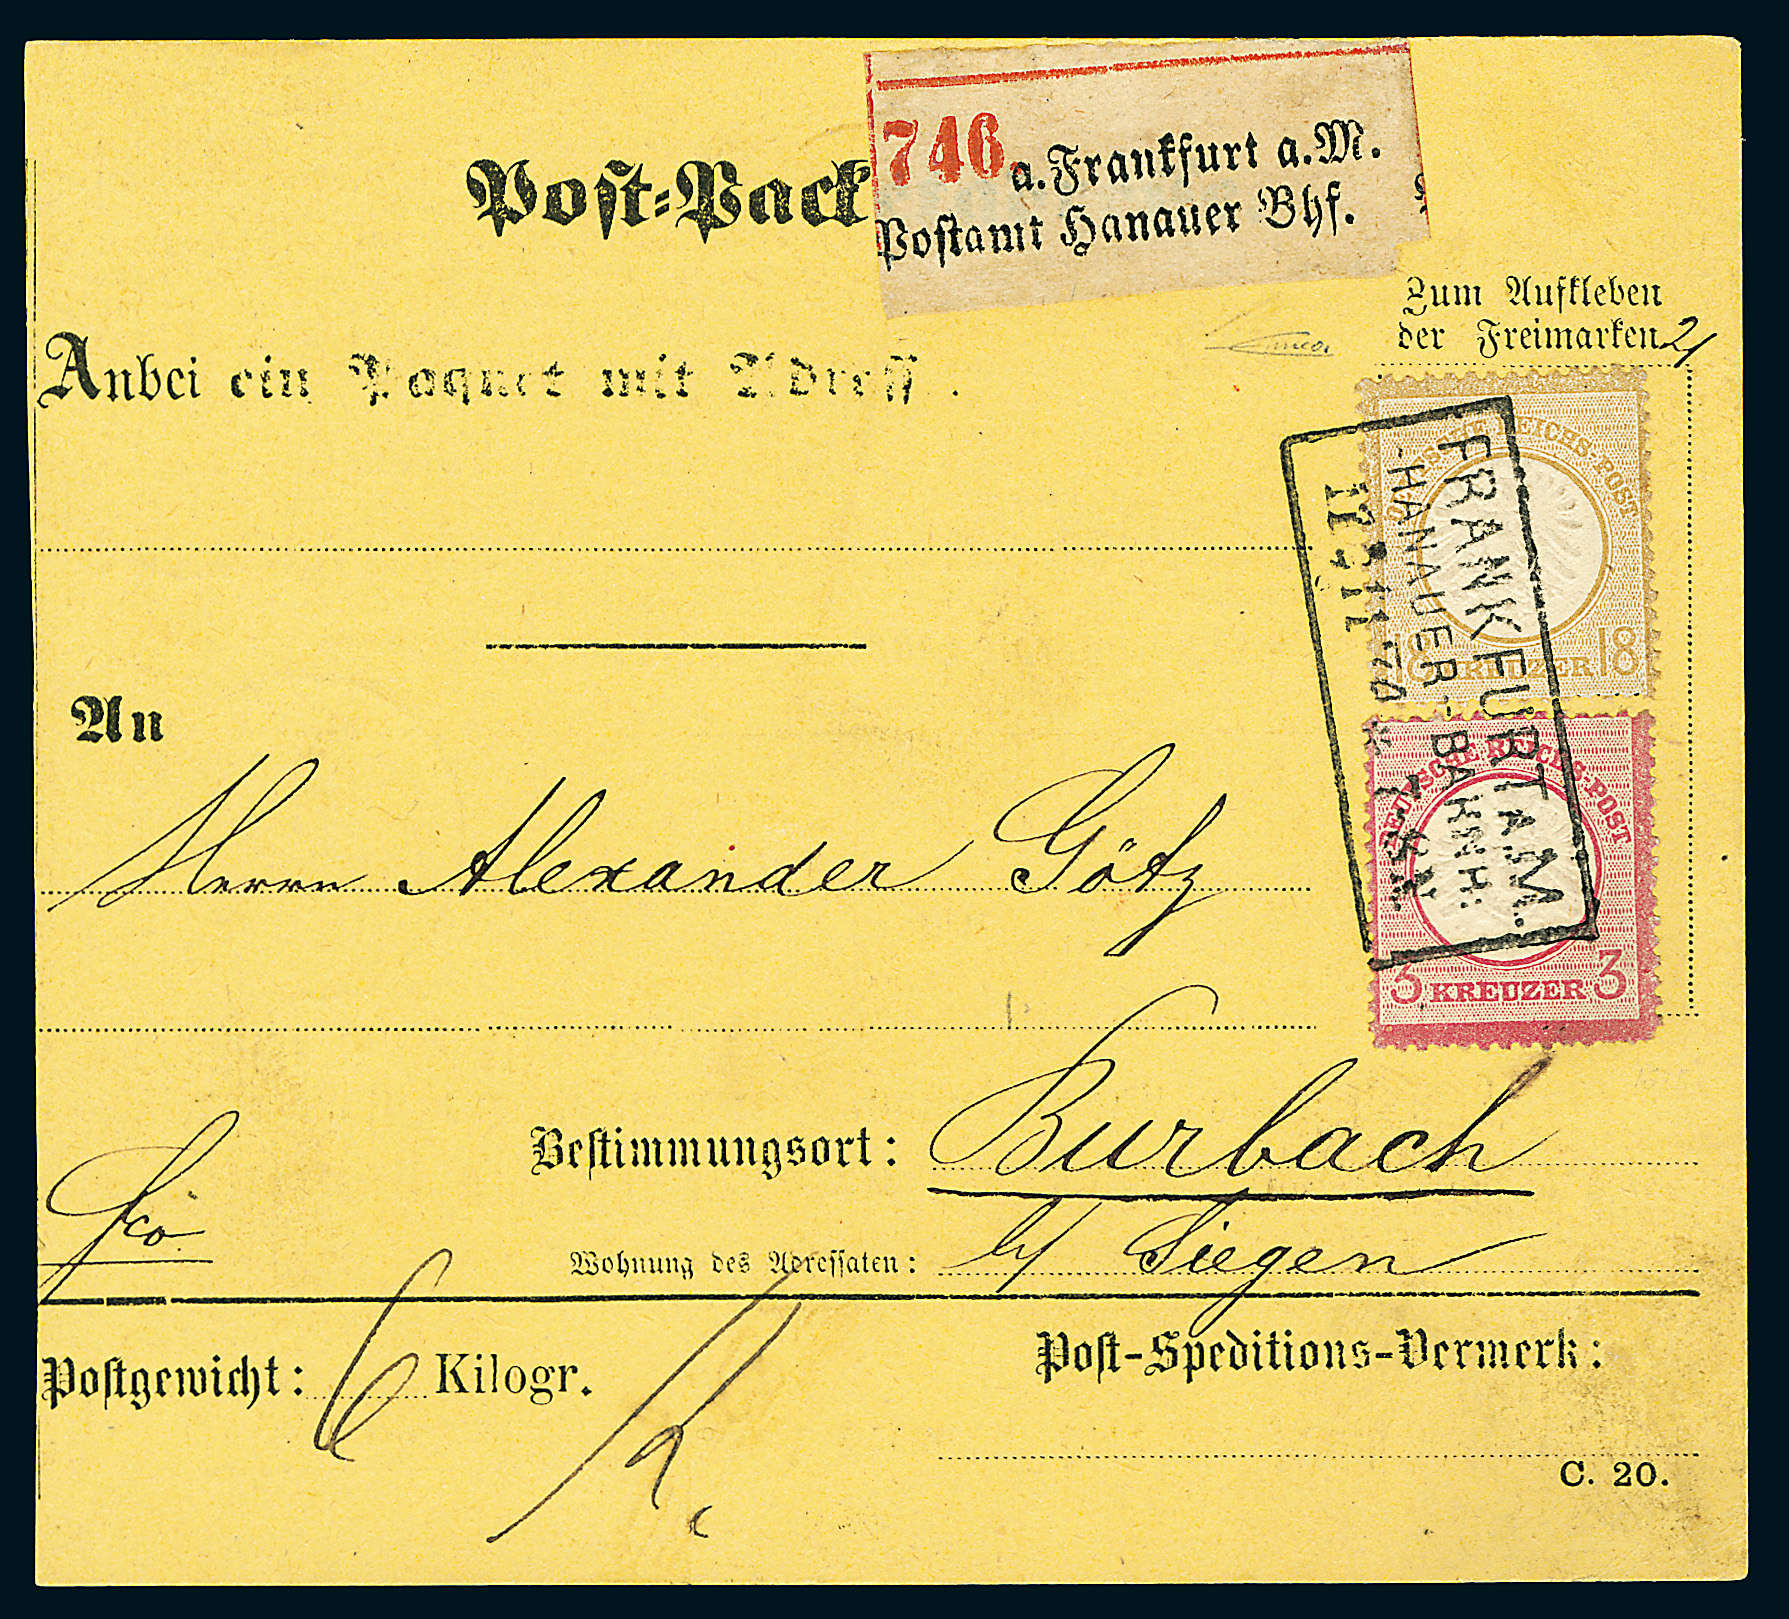 Post-Pack
746
a. Frankfurt a. M.
Postamt Hanauer Bhf.
Zum Aufkleben
der Freimarken
21
Anbei ein Paquet mit Adress
DEUTSCHE REICHS-POST
18 KREUZER 18
FRANKFURT A. M.
-HANAUER-BAHNH:
DEUTSCHE REICHS-POST
3 KREUZER 3
An
Herrn Alexander Götz
Bestimmungsort: Burbach
fco
Wohnung des Adressaten: b/ Siegen
Postgewicht: 6 Kilogr.
Post-Speditions-Vermerk:
C. 20.